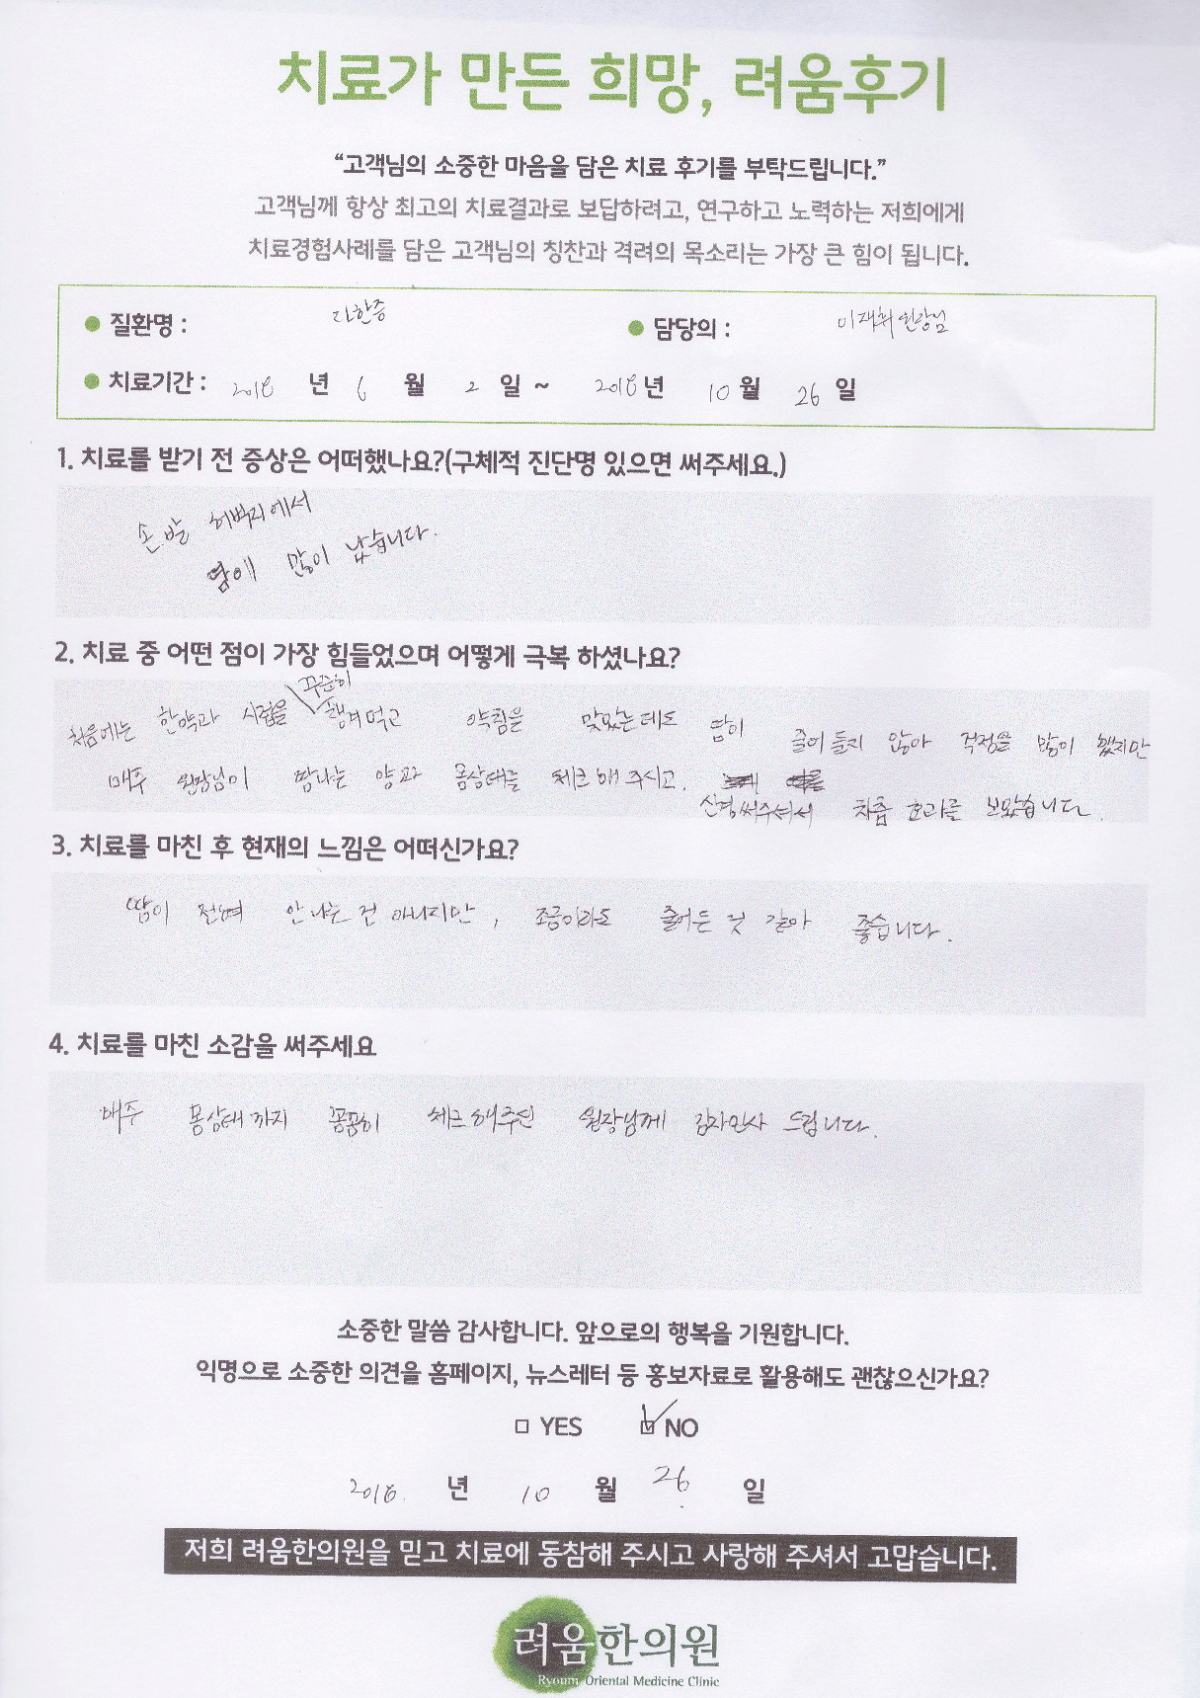 치료가 만든 희망, 려움후기
“고객님의 소중한 마음을 담은 치료 후기를 부탁드립니다.”
고객님께 항상 최고의 치료결과로 보답하려고, 연구하고 노력하는 저희에게
치료경험사례를 담은 고객님의 칭찬과 격려의 목소리는 가장 큰 힘이 됩니다.
● 질환명 : 다한증 ● 담당의 : 이재휘 원장님
● 치료기간 : 2018 년 6 월 2 일 ~ 2018 년 10 월 26 일
1. 치료를 받기 전 증상은 어떠했나요?(구체적 진단명 있으면 써주세요.)
손.발 허벅지에서
땀에 많이 났습니다.
2. 치료 중 어떤 점이 가장 힘들었으며 어떻게 극복 하셨나요?
처음에는 한약과 시럽을 꾸준히 챙겨먹고 약침을 맞았는데도 땀이 줄어들지 않아 걱정을 많이 했지만
매주 원장님이 땀나는 양과 몸상태를 체크해 주시고.
신경써주셔서 차츰 효과를 보았습니다.
3. 치료를 마친 후 현재의 느낌은 어떠신가요?
땀이 전혀 안나는 건 아니지만, 조금이라도 줄어든 것 같아 좋습니다.
4. 치료를 마친 소감을 써주세요
매주 몸상태까지 꼼꼼히 체크해주던 원장님께 감사인사 드립니다.
소중한 말씀 감사합니다. 앞으로의 행복을 기원합니다.
익명으로 소중한 의견을 홈페이지, 뉴스레터 등 홍보자료로 활용해도 괜찮으신가요?
□ YES ☑ NO
2018. 년 10 월 26 일
저희 려움한의원을 믿고 치료에 동참해 주시고 사랑해 주셔서 고맙습니다.
려움한의원
Ryoum Oriental Medicine Clinic